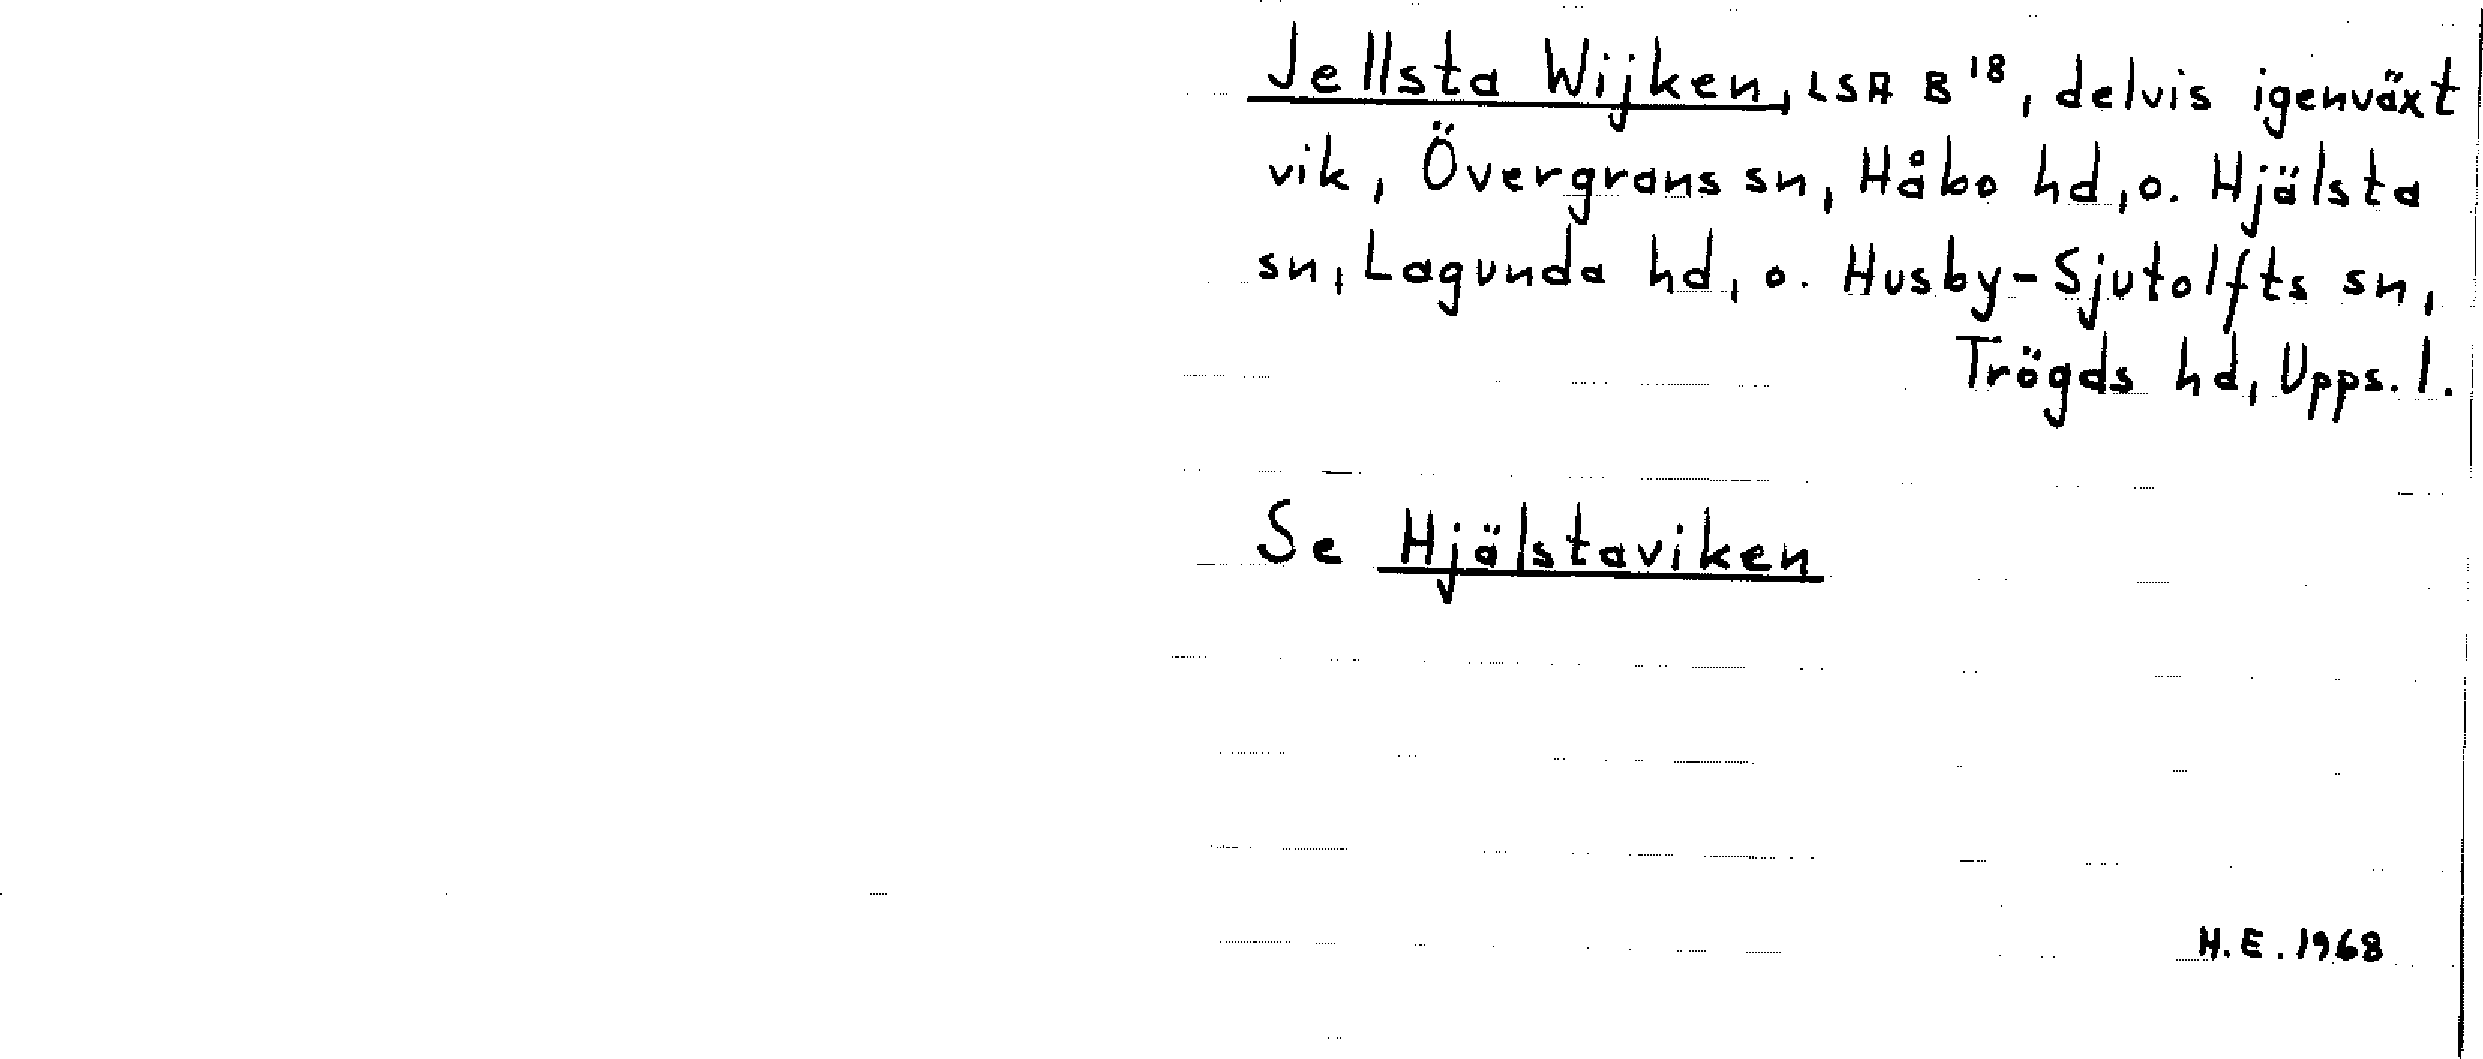 Jellsta Wijken, LSA B¹⁸, delvis igenväxt
vik, Övergrans sn, Håbo hd, o. Hjälsta
sn, Lagunda hd, o. Husby-Sjutolfts sn,
Trögds hd, Upps. l.
Se Hjälstaviken
H.E. 1968